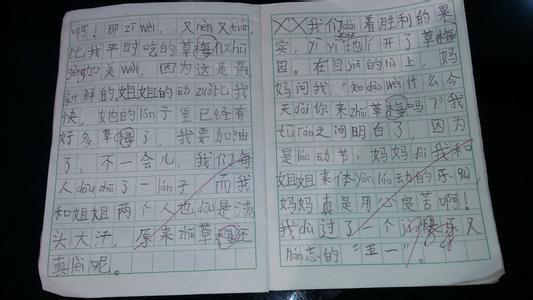 啊！那 zī wèi，又 nèn 又 tián，
比我平时吃的草梅似 hū
gèng 加美 wèi，因为这是最
新鲜的。姐姐的动 zuò 比我
快，她的 lán 子里已经有
好多草梅了，我要加油
了，不一会儿，我们每
人 dōu zhāi 了一 lán 子，而我
和姐姐两个人也 dōu 是满
头大汗，原来 zhāi 草梅还
真 lèi 呢。
XX我们 dài 着胜利的果
实，yī yī 地 lí 开了草梅
园。在回 jiā 的 lù 上，妈
妈问我："知 dào wèi 什么今
天 dài 你来 zhāi 草梅吗？"我
tū rán 之间明白了，因为
是 láo 动节，妈妈 dài 我和
姐姐来体 yàn láo 动的乐 qù，
妈妈真是用心良苦啊！
我 dù 过了一个快乐又
nán 忘的"五一"。